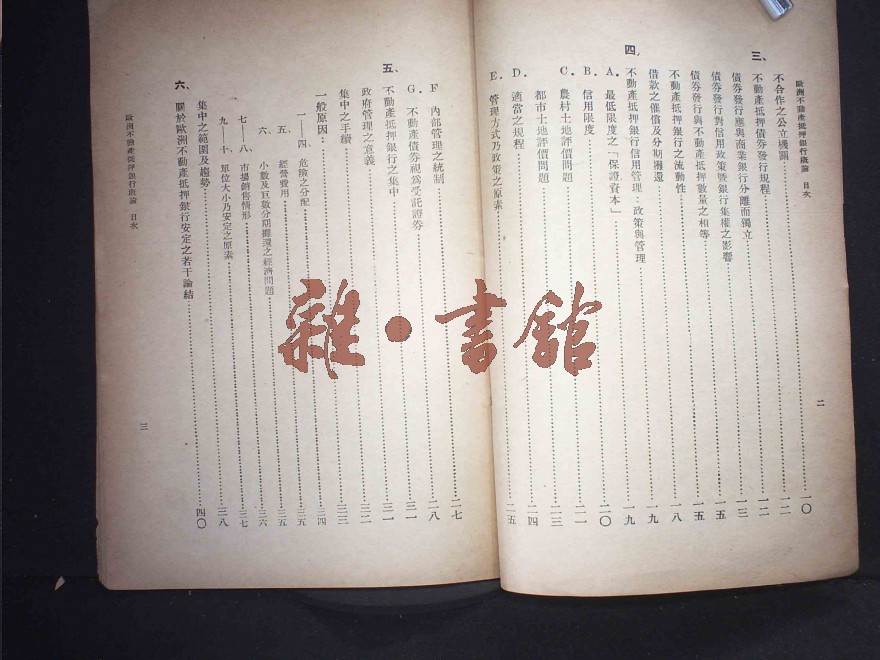 歐洲不動產抵押銀行概論 目次
不合作之公立機關……一〇
三、不動產抵押債券發行規程……一二
債券發行應與商業銀行分離而獨立……一二
債券發行對信用政策暨銀行集權之影響……一三
債券發行與不動產抵押數量之相等……一五
不動產抵押銀行之流動性……一五
借款之催償及分期攤還……一八
四、不動產抵押銀行信用管理:政策與管理……一九
A. 最低限度之「保證資本」……一九
B. 信用限度……二〇
C. 農村土地評價問題……二一
都市土地評價問題……二三
D. 適當之規程……二四
E. 管理方式乃政策之原素……二五
二
F 內部管理之統制……二七
G. 不動產債券視為受託證券……二八
五、不動產抵押銀行之集中……三一
政府管理之意義……三一
集中之手續……三二
一般原因……三三
一——四、危險之分配……三四
五、經營費用……三五
六、小數及百數分期攤還之經濟問題……三五
七——八、市場銷售情形……三六
九——十、單位大小乃安定之原素……三七
集中之範圍及趨勢……三八
六、關於歐洲不動產抵押銀行安定之若干論結……四〇
歐洲不動產抵押銀行概論 目次
三
雜·書舘